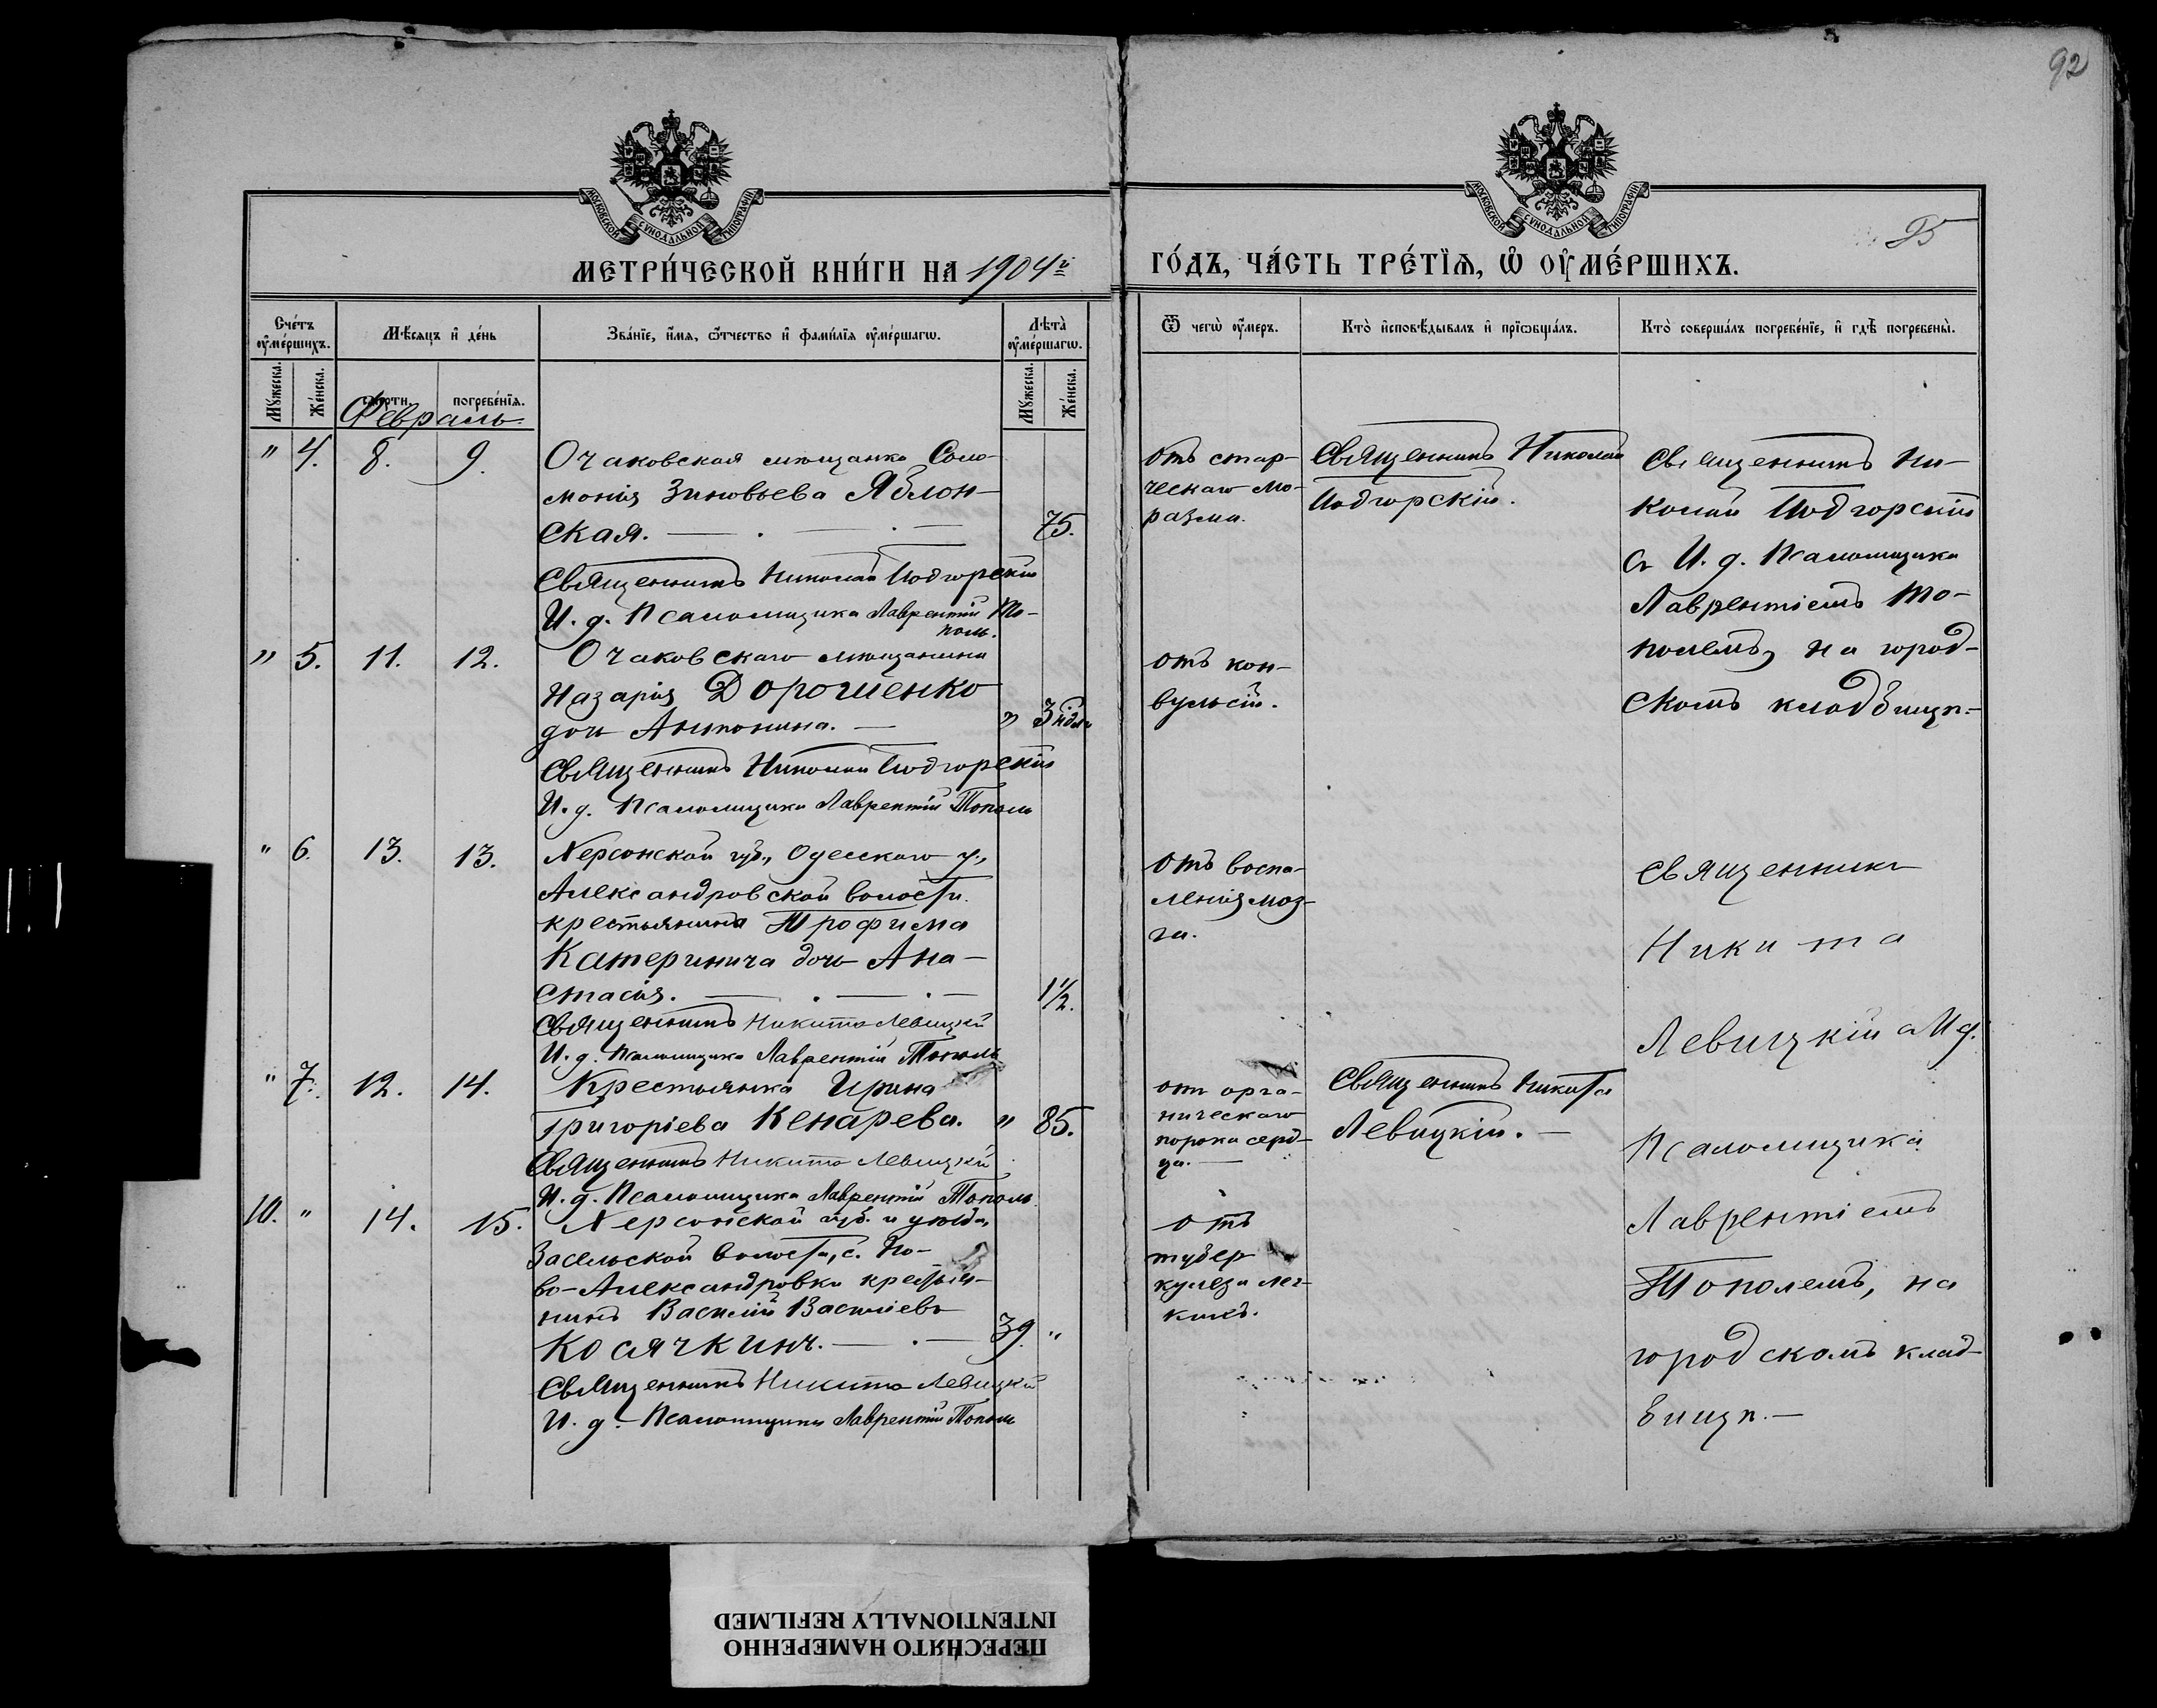 92
МОСКОВСКОЙ СУНОДАЛЬНОЙ ТИПОГРАФІИ
МОСКОВСКОЙ СУНОДАЛЬНОЙ ТИПОГРАФІИ
МЕТРИ́ЧЕСКОЙ КНИ́ГИ НА 1904й
ГО́ДЪ, ЧА́СТЬ ТРЕ́ТЇѦ, Ѡ҆ ОУ҆МЕ́РШИХЪ.
Сче́тъ оу҆ме́ршихъ.
Мѣ́сяцъ и҆ де́нь
Зва́нїе, и҆́мя, ѻ҆́тчество и҆ фами́лїя оу҆ме́ршагѡ.
Лѣта̀ оу҆ме́ршагѡ.
Ѿ чегѡ̀ оу҆́меръ.
Кто̀ и҆сповѣ́дывалъ и҆ прїѡбща́лъ.
Кто̀ соверша́лъ погребе́нїе, и҆ гдѣ̀ погребены̀.
Му́жеска.
Же́нска.
сме́рти.
погребе́нїя.
Му́жеска.
Же́нска.
Февраль.
" 4. 8. 9.
Очаковская мѣщанка Соло-
монія Зиновьева Яблон-
ская. — . — . — 75.
Священникъ Николай Подгорскій
И. д. Псаломщика Лаврентій То-
поль.
отъ стар-
ческаго ма-
разма.
Священникъ Николай
Подгорскій.
Священникъ Ни-
колай Подгорскій
съ И. д. Псаломщика
Лаврентіемъ То-
полемъ, на город-
скомъ кладбищѣ.—
" 5. 11. 12.
Очаковскаго мѣщанина
Назарія Дорошенко
дочь Антонина. — " 3 нѣд.
Священникъ Николай Подгорскій
И. д. Псаломщика Лаврентій Тополь
отъ кон-
вульсій.
" 6. 13. 13.
Херсонской губ., Одесскаго у.,
Александровской волости.
крестьянина Трофима
Катеринича дочь Ана-
стасія. — . — . — 1½.
Священникъ Никита Левицкій
И. д. Псаломщика Лаврентій Тополь
отъ воспа-
ленія моз-
га.
Священникъ
Никита
Левицкій съ И д.
Псаломщика
Лаврентіемъ
Тополемъ, на
городскомъ клад-
бищѣ.—
" 7. 12. 14.
Крестьянка Ирина
Григоріева Кенарева. " 85.
Священникъ Никита Левицкій
И. д. Псаломщика Лаврентій Тополь
отъ орга-
ническаго
порока серд-
ца.—
Священникъ Никита
Левицкій.—
10. " 14. 15.
Херсонской губ. и уѣзда,
Засельской волости, с. Но-
во-Александровки крестья-
нинъ Василій Васильевъ
Косячкинъ. — . — 39. "
Священникъ Никита Левицкій
И. д. Псаломщика Лаврентій Тополь
отъ
тубер
кулеза лег-
кихъ.
ПЕРЕСНЯТО НАМЕРЕННО
INTENTIONALLY REFILMED